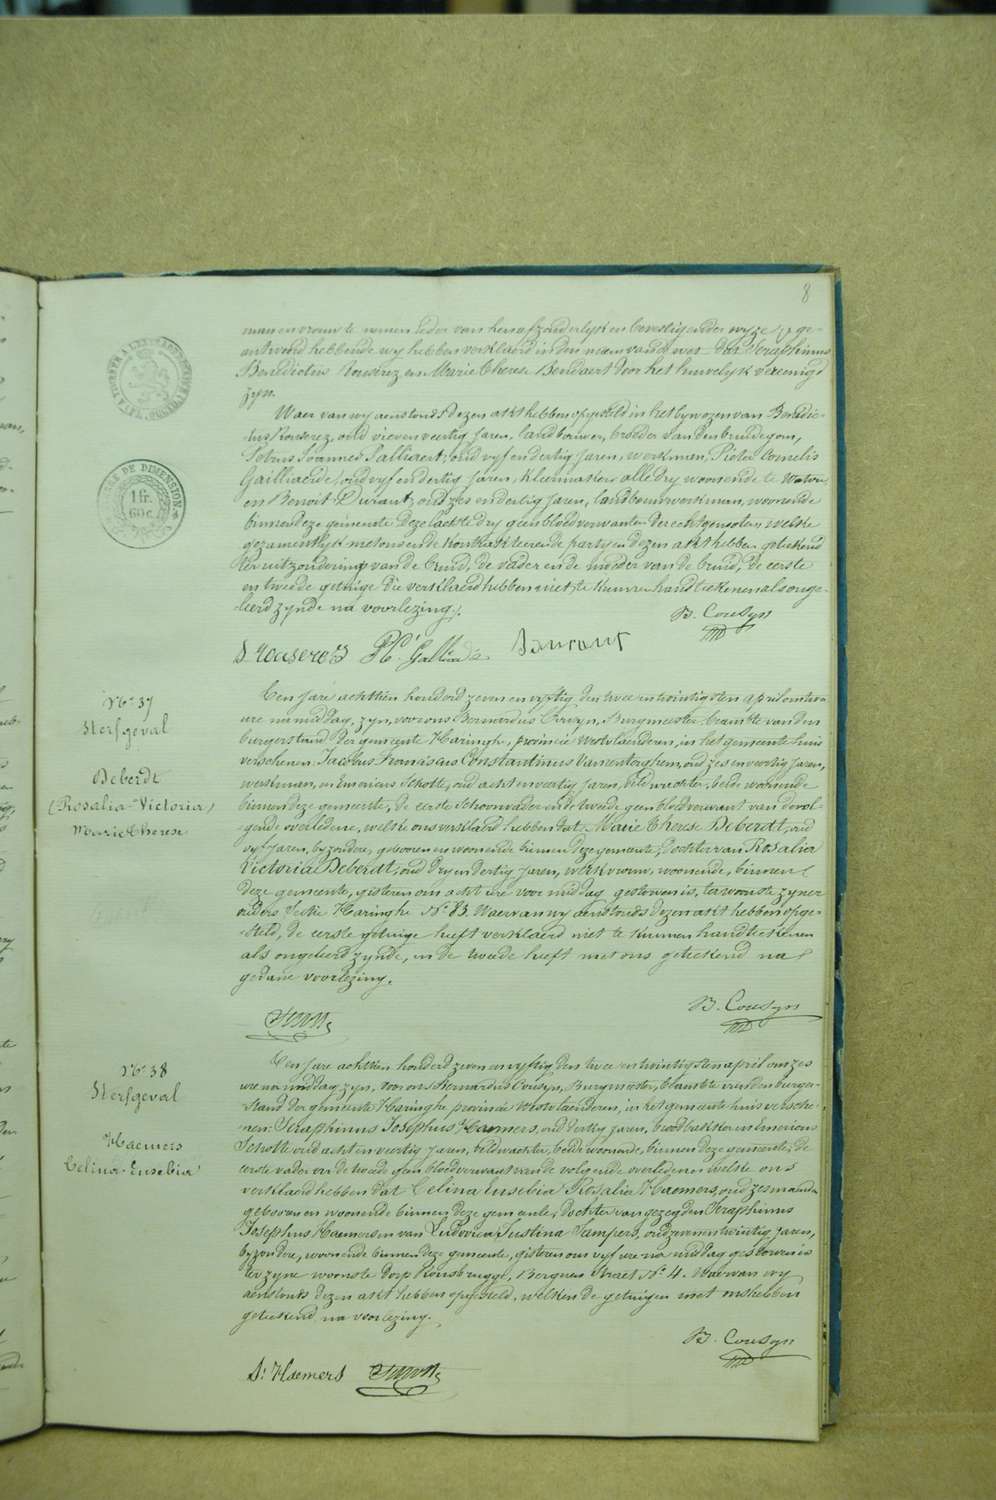 8
man en vrouw te nemen ieder van hen afzonderlyk en bevestigender wyze ge-
antwoord hebbende wy hebben verklaerd in den naem van de wet dat Seraphinus
Benedictus Rouserez en Marie Therese Bendaert door het huwelyk vereenigd
zyn.
Waer van wy aenstonds dezen akt hebben opgesteld in het bywezen van Benedic-
tus Rouserez, oud vier en veertig jaren, landbouwer, broeder van den bruidegom,
Petrus Joannes Pallieert, oud vyf en dertig jaren, werkman, Pieter Cornelis
Gailliaerde, oud vyf en dertig jaren, kleermaker alle dry woonende te Watou
en Benoit Durant, oud zes en dertig jaren, landbouwwerkman, woonende
binnen deze gemeente deze laetste dry geen bloedverwanten der echtgenooten, welke
gezamentlyk met ons en de kontrakteerende partyen dezen akt hebben geteekend
ter uitzondering van de bruid, de vader en de moeder van de bruid, de eerste
en tweede getuige die verklaerd hebben niet te kunnen handteekenen als onge-
leerd zynde na voorlezing.
B. Cousyn
S Rouserez Pt. C. Galliaerde Durant
MESURE DE DIMENSION
1 fr.
60 c.
No. 37
Sterfgeval
Deberdt
(Rosalia-Victoria)
Marie Therese
Een jare achttien honderd zeven en vyftig den twee en twintigsten april om twee
ure namiddag, zyn, voor ons Bernardus Cousyn, Burgmeester, beambte van den
burgerstand der gemeente Haringhe, provincie Westvlaenderen, in het gemeente huis
verschenen Jacobus Franciscus Constantinus Vanrenterghem, oud zes en veertig jaren,
werkman, en Emerians Schotte, oud acht en veertig jaren, veldwachter, beide woonende
binnen deze gemeente, de eerste schoonvader en de tweede geen bloedverwant van de vol-
gende overledene, welke ons verklaerd hebben dat Marie Therese Deberdt, oud
vyf jaren, byzondere, geboren en woonende binnen deze gemeente, dochter van Rosalia
Victoria Deberdt, oud dry en dertig jaren, werkvrouw, woonende, binnen
deze gemeente, gisteren om acht ure voor middag gestorven is, ter woonste zyner
ouders Sectie Haringhe No. 83. Waer van wy aenstonds dezen akt hebben opge-
steld, de eerste getuige heeft verklaerd niet te kunnen handteekenen
als ongeleerd zynde, en de tweede heeft met ons geteekend na
gedane voorlezing.
B. Cousyn
No. 38
Sterfgeval
Haemers
Celina-Eusebia
Een jare achttien honderd zeven en vyftig den twee en twintigsten april om zes
ure na middag zyn, voor ons Bernardus Cousyn, Burgmeester, beambte van den burger-
stand der gemeente Haringhe provincie Westvlaenderen, in het gemeente huis versche-
nen Seraphinus Josephus Haemers, oud dertig jaren, broodbakker en Emerians
Schotte oud acht en veertig jaren, veldwachter, beide woonende, binnen deze gemeente, de
eerste vader en de tweede geen bloedverwant van de volgende overledene welke ons
verklaerd hebben dat Celina Eusebia Rosalia Haemers, oud zes maenden
geboren en woonende binnen deze gemeente, dochter van gezegden Seraphinus
Josephus Haemers en van Ludovica Justina Sampers, oud zeven en twintig jaren,
byzondere, woonende binnen deze gemeente, gisteren om vyf ure na middag gestorven is
ter zyne woonste dorp Rousbrugge, Bergues straet No. 4. Waer van wy
aenstonds dezen akt hebben opgesteld, welken de getuigen met ons hebben
geteekend na voorlezing.
B. Cousyn
S: Haemers